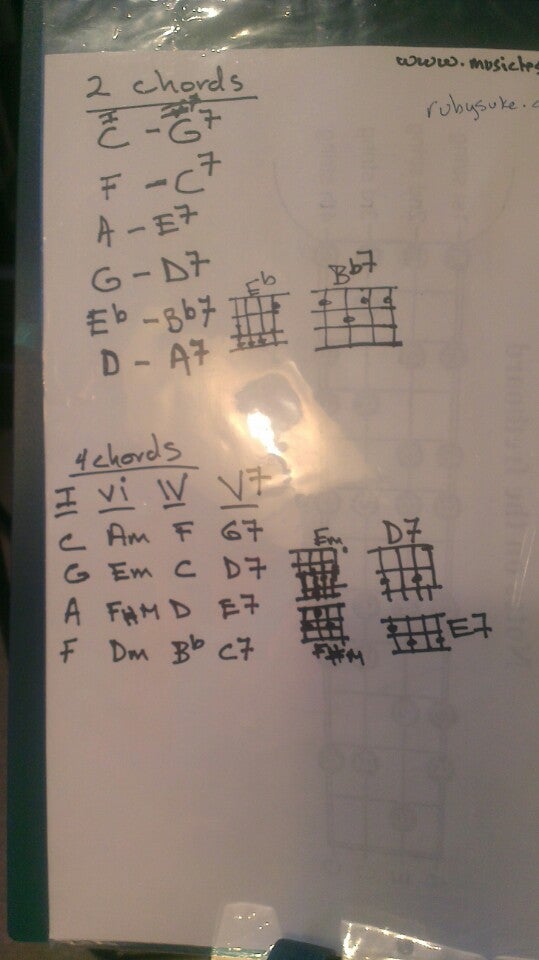 www.musicteac
rubysuke.c
2 chords
I
C - G7
F - C7
A - E7
G - D7
Eb - Bb7
Eb
Bb7
D - A7
4 chords
I vi IV V7
C Am F G7
G Em C D7
A F#M D E7
F Dm Bb C7
Em
D7
F#M
E7